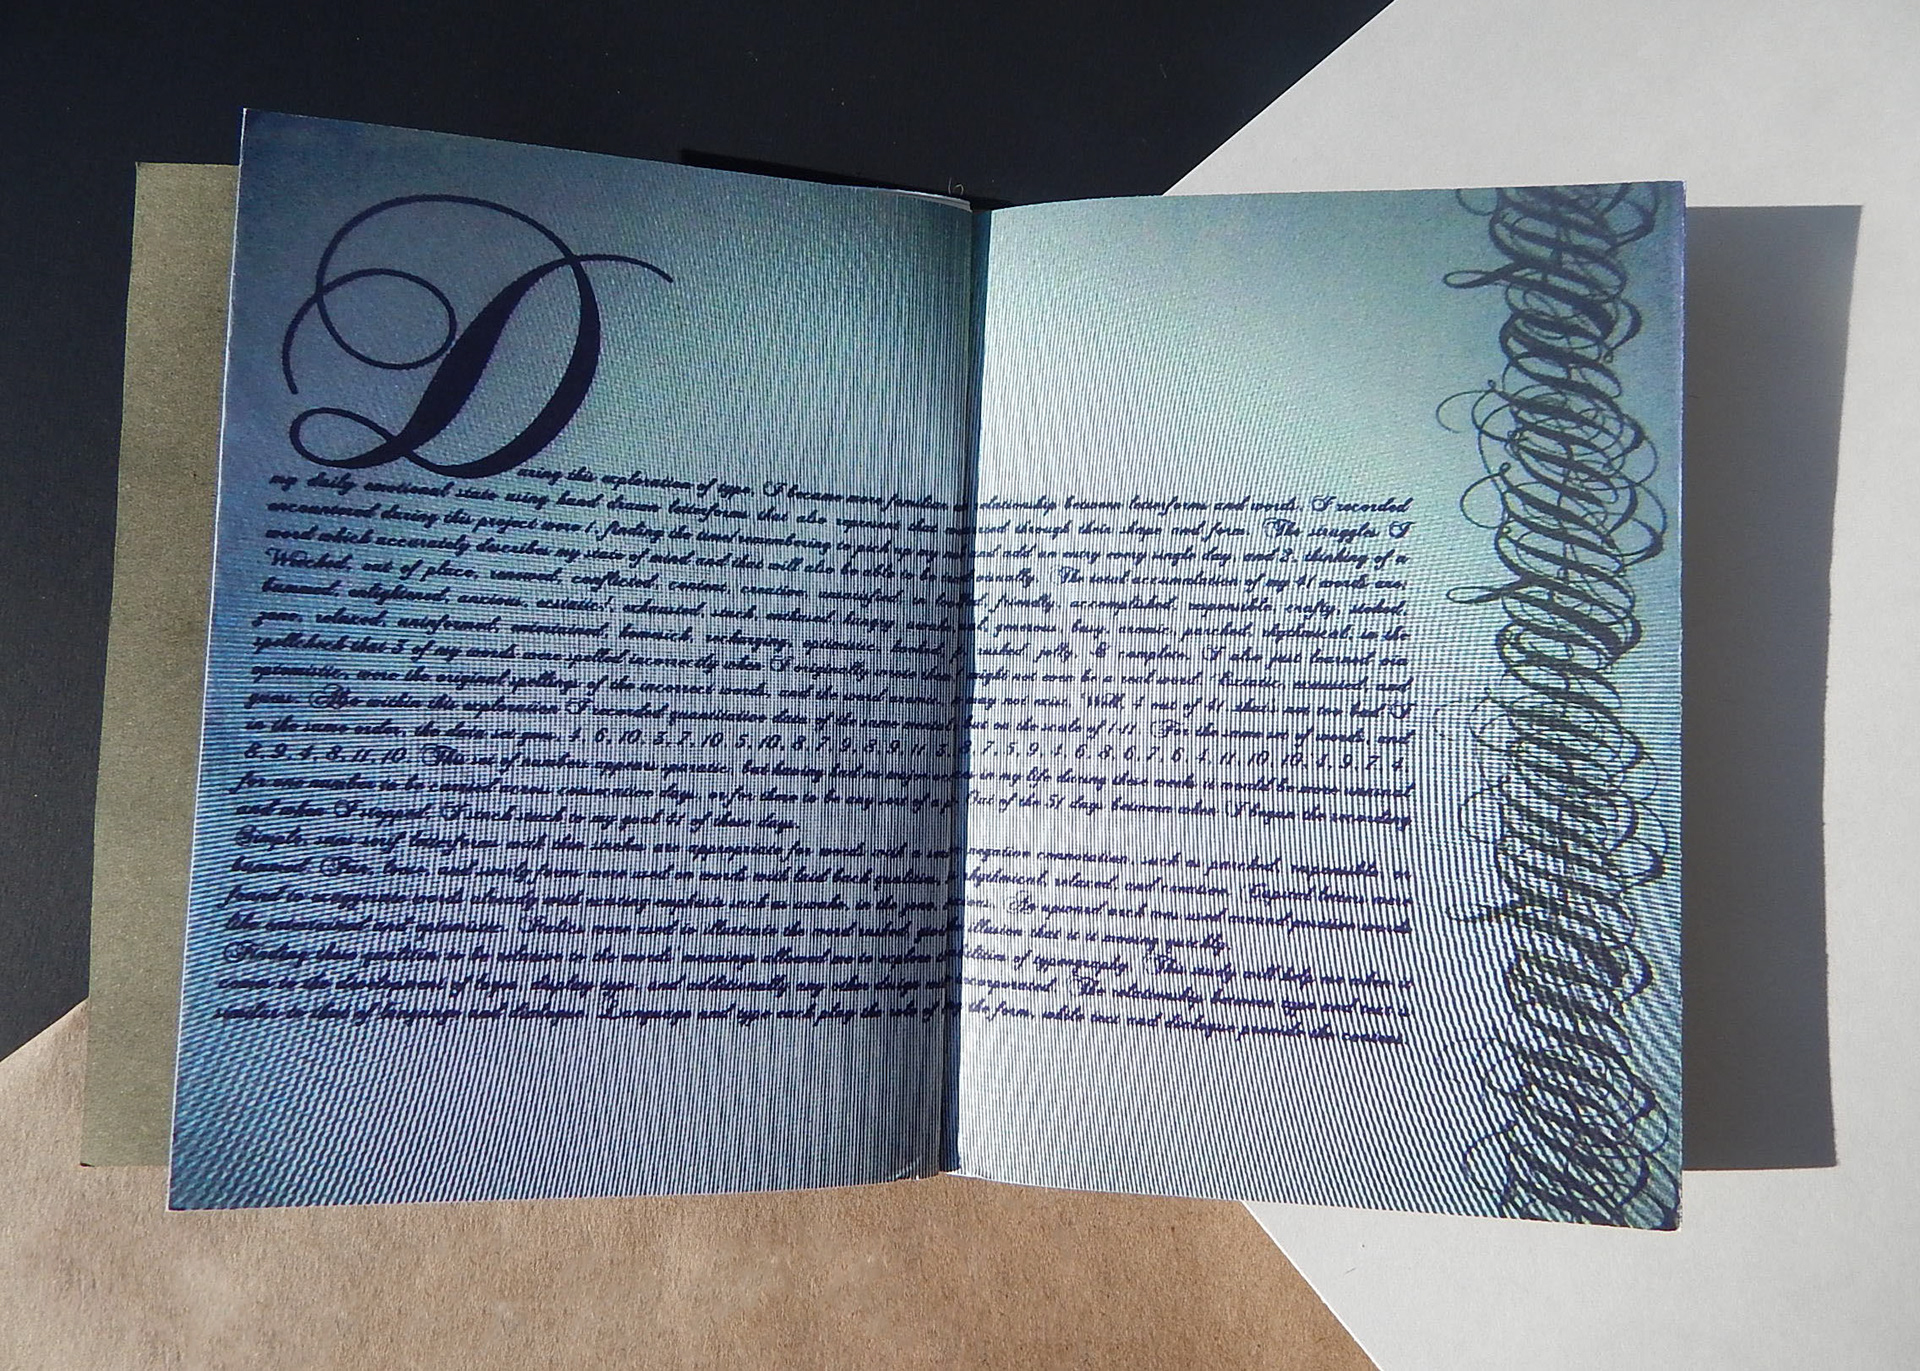 During this exploration of type, I became more familiar relationship between letterforms and words. I recorded
my daily emotional state using hand drawn letterforms that also represent that through their shape and form. The struggles I
encountered during this project were 1. finding the time/remembering to pick up my and add an entry every single day and 2. thinking of a
word which accurately describes my state of mind and that will also be able to be visually. The total accumulation of my 41 words are;
Wretched, out of place, renewed, conflicted, content, creative, unsatisfied, friendly, accomplished, responsible, crafty, stoked,
bummed, enlightened, anxious, ecstatic!, exhausted, stuck, enthused, hungry, generous, busy, aromic, parched, rhythmical, in the
zone, relaxed, uninformed, entertained, homesick, recharging, optimistic, rushed, jolly, & complete. I also just learned via
spellcheck that 3 of my words were spelled incorrectly when I originally wrote them might not even be a real word. Ecstatic, and
optomistic, were the original spellings of the incorrect words, and the word aromic, may not exist. Well, 4 out of 41 that's not too bad I
guess. Also within this exploration I recorded quantitative data of the same but on the scale of 1-11. For the same set of words, and
in the same order, the data set goes, 4, 6, 10, 3, 7, 10, 5, 10, 8, 7, 9, 8, 9, 11, 7, 5, 9, 4, 6, 8, 6, 7, 6, 4, 11, 10, 10, 4, 9, 7, 4,
8, 9, 4, 8, 11, 10. This set of numbers appears sporatic, but having had no major in my life during these weeks it would be more unusual
for one number to be carried across consecutive days, or for there to be any sort of a Out of the 51 days between when I began the recording
and when I stopped, I stuck to my goal 41 of those days.
Simple, sans serif letterforms with thin strokes are appropriate for words with a negative connotation, such as parched, responsible, or
bummed. Fun, loose, and swirly forms were used on words with laid back qualities, rhythmical, relaxed, and creative. Capital letters were
found to exaggerate words already with existing emphasis such as awake, in the zone, An upward arch was used around positive words
like entertained and optimistic. Italics were used to illustrate the word rushed, illusion that it is moving quickly.
Finding these qualities to be relative to the words meanings allowed me to explore of typography. This study will help me when it
comes to the development of logos, display type, and additionally any other design incorporated. The relationship between type and text is
similar to that of language and dialogue. Language and type each play the role of the form, while text and dialogue provide the content.